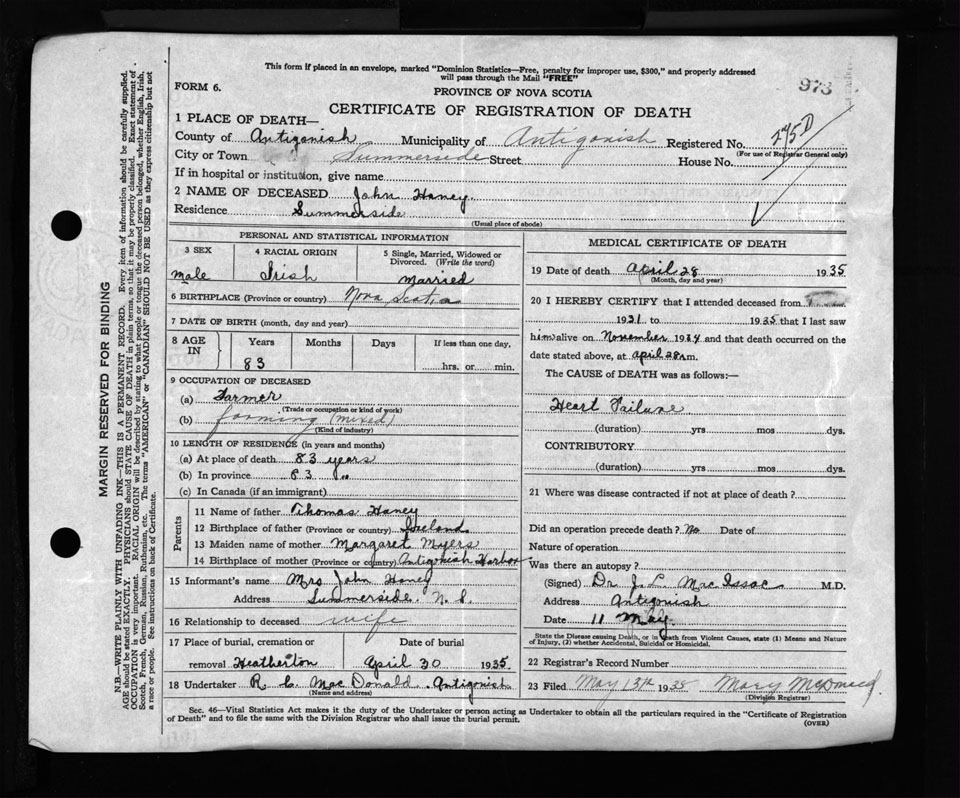 This form if placed in an envelope, marked "Dominion Statistics—Free, penalty for improper use, $300," and properly addressed
will pass through the Mail "FREE"
973
FORM 6.
PROVINCE OF NOVA SCOTIA
CERTIFICATE OF REGISTRATION OF DEATH
1 PLACE OF DEATH—
County of Antigonish Municipality of Antigonish Registered No.
(For use of Registrar General only)
City or Town Summerside Street House No.
If in hospital or institution, give name
2 NAME OF DECEASED John Haney
Residence Summerside
(Usual place of abode)
PERSONAL AND STATISTICAL INFORMATION
3 SEX
male
4 RACIAL ORIGIN
Irish
5 Single, Married, Widowed or
Divorced. (Write the word)
Married
6 BIRTHPLACE (Province or country) Nova Scotia
7 DATE OF BIRTH (month, day and year)
8 AGE IN Years Months Days If less than one day,
83 hrs. or min.
9 OCCUPATION OF DECEASED
(a) Farmer
(Trade or occupation or kind of work)
(b) farming (mixed)
(Kind of industry)
10 LENGTH OF RESIDENCE (in years and months)
(a) At place of death 83 years
(b) In province 83 "
(c) In Canada (if an immigrant)
Parents
11 Name of father Thomas Haney
12 Birthplace of father (Province or country) Ireland
13 Maiden name of mother Margaret Myers
14 Birthplace of mother (Province or country) Antigonish Harbor
15 Informant's name Mrs John Haney
Address Summerside. N. S.
16 Relationship to deceased wife
17 Place of burial, cremation or Date of burial
removal Heatherton April 30 1935
18 Undertaker R. C. MacDonald. Antigonish
(Name and address)
MEDICAL CERTIFICATE OF DEATH
19 Date of death April 28 1935
(Month, day and year)
20 I HEREBY CERTIFY that I attended deceased from
1931 to 1935 that I last saw
him alive on November 1934 and that death occurred on the
date stated above, at april 28 m.
The CAUSE of DEATH was as follows:—
Heart Failure
(duration) yrs mos dys.
CONTRIBUTORY
(duration) yrs mos dys.
21 Where was disease contracted if not at place of death?
Did an operation precede death? No Date of
Nature of operation
Was there an autopsy?
(Signed) Dr J. L. MacIssac M.D.
Address Antigonish
Date 11 May
State the Disease causing Death, or in Death from Violent Causes, state (1) Means and Nature
of Injury, (2) whether Accidental, Suicidal or Homicidal.
22 Registrar's Record Number
23 Filed May 13th 1935 Mary
(Division Registrar)
Sec. 46—Vital Statistics Act makes it the duty of the Undertaker or person acting as Undertaker to obtain all the particulars required in the "Certificate of Registration
of Death" and to file the same with the Division Registrar who shall issue the burial permit.
(OVER)
MARGIN RESERVED FOR BINDING
N.B.—WRITE PLAINLY WITH UNFADING INK—THIS IS A PERMANENT RECORD. Every item of information should be carefully supplied.
AGE should be stated EXACTLY. PHYSICIANS should STATE CAUSE OF DEATH in plain terms, so that it may be properly classified. Exact statement of
OCCUPATION is very important. RACIAL ORIGIN will be described by stating to what people or tongue the deceased person belonged, whether English, Irish,
Scotch, French, German, Russian, Ruthenian, etc. The terms "AMERICAN" or "CANADIAN" SHOULD NOT BE USED as they express citizenship but not
a race or people. See instructions on back of Certificate.